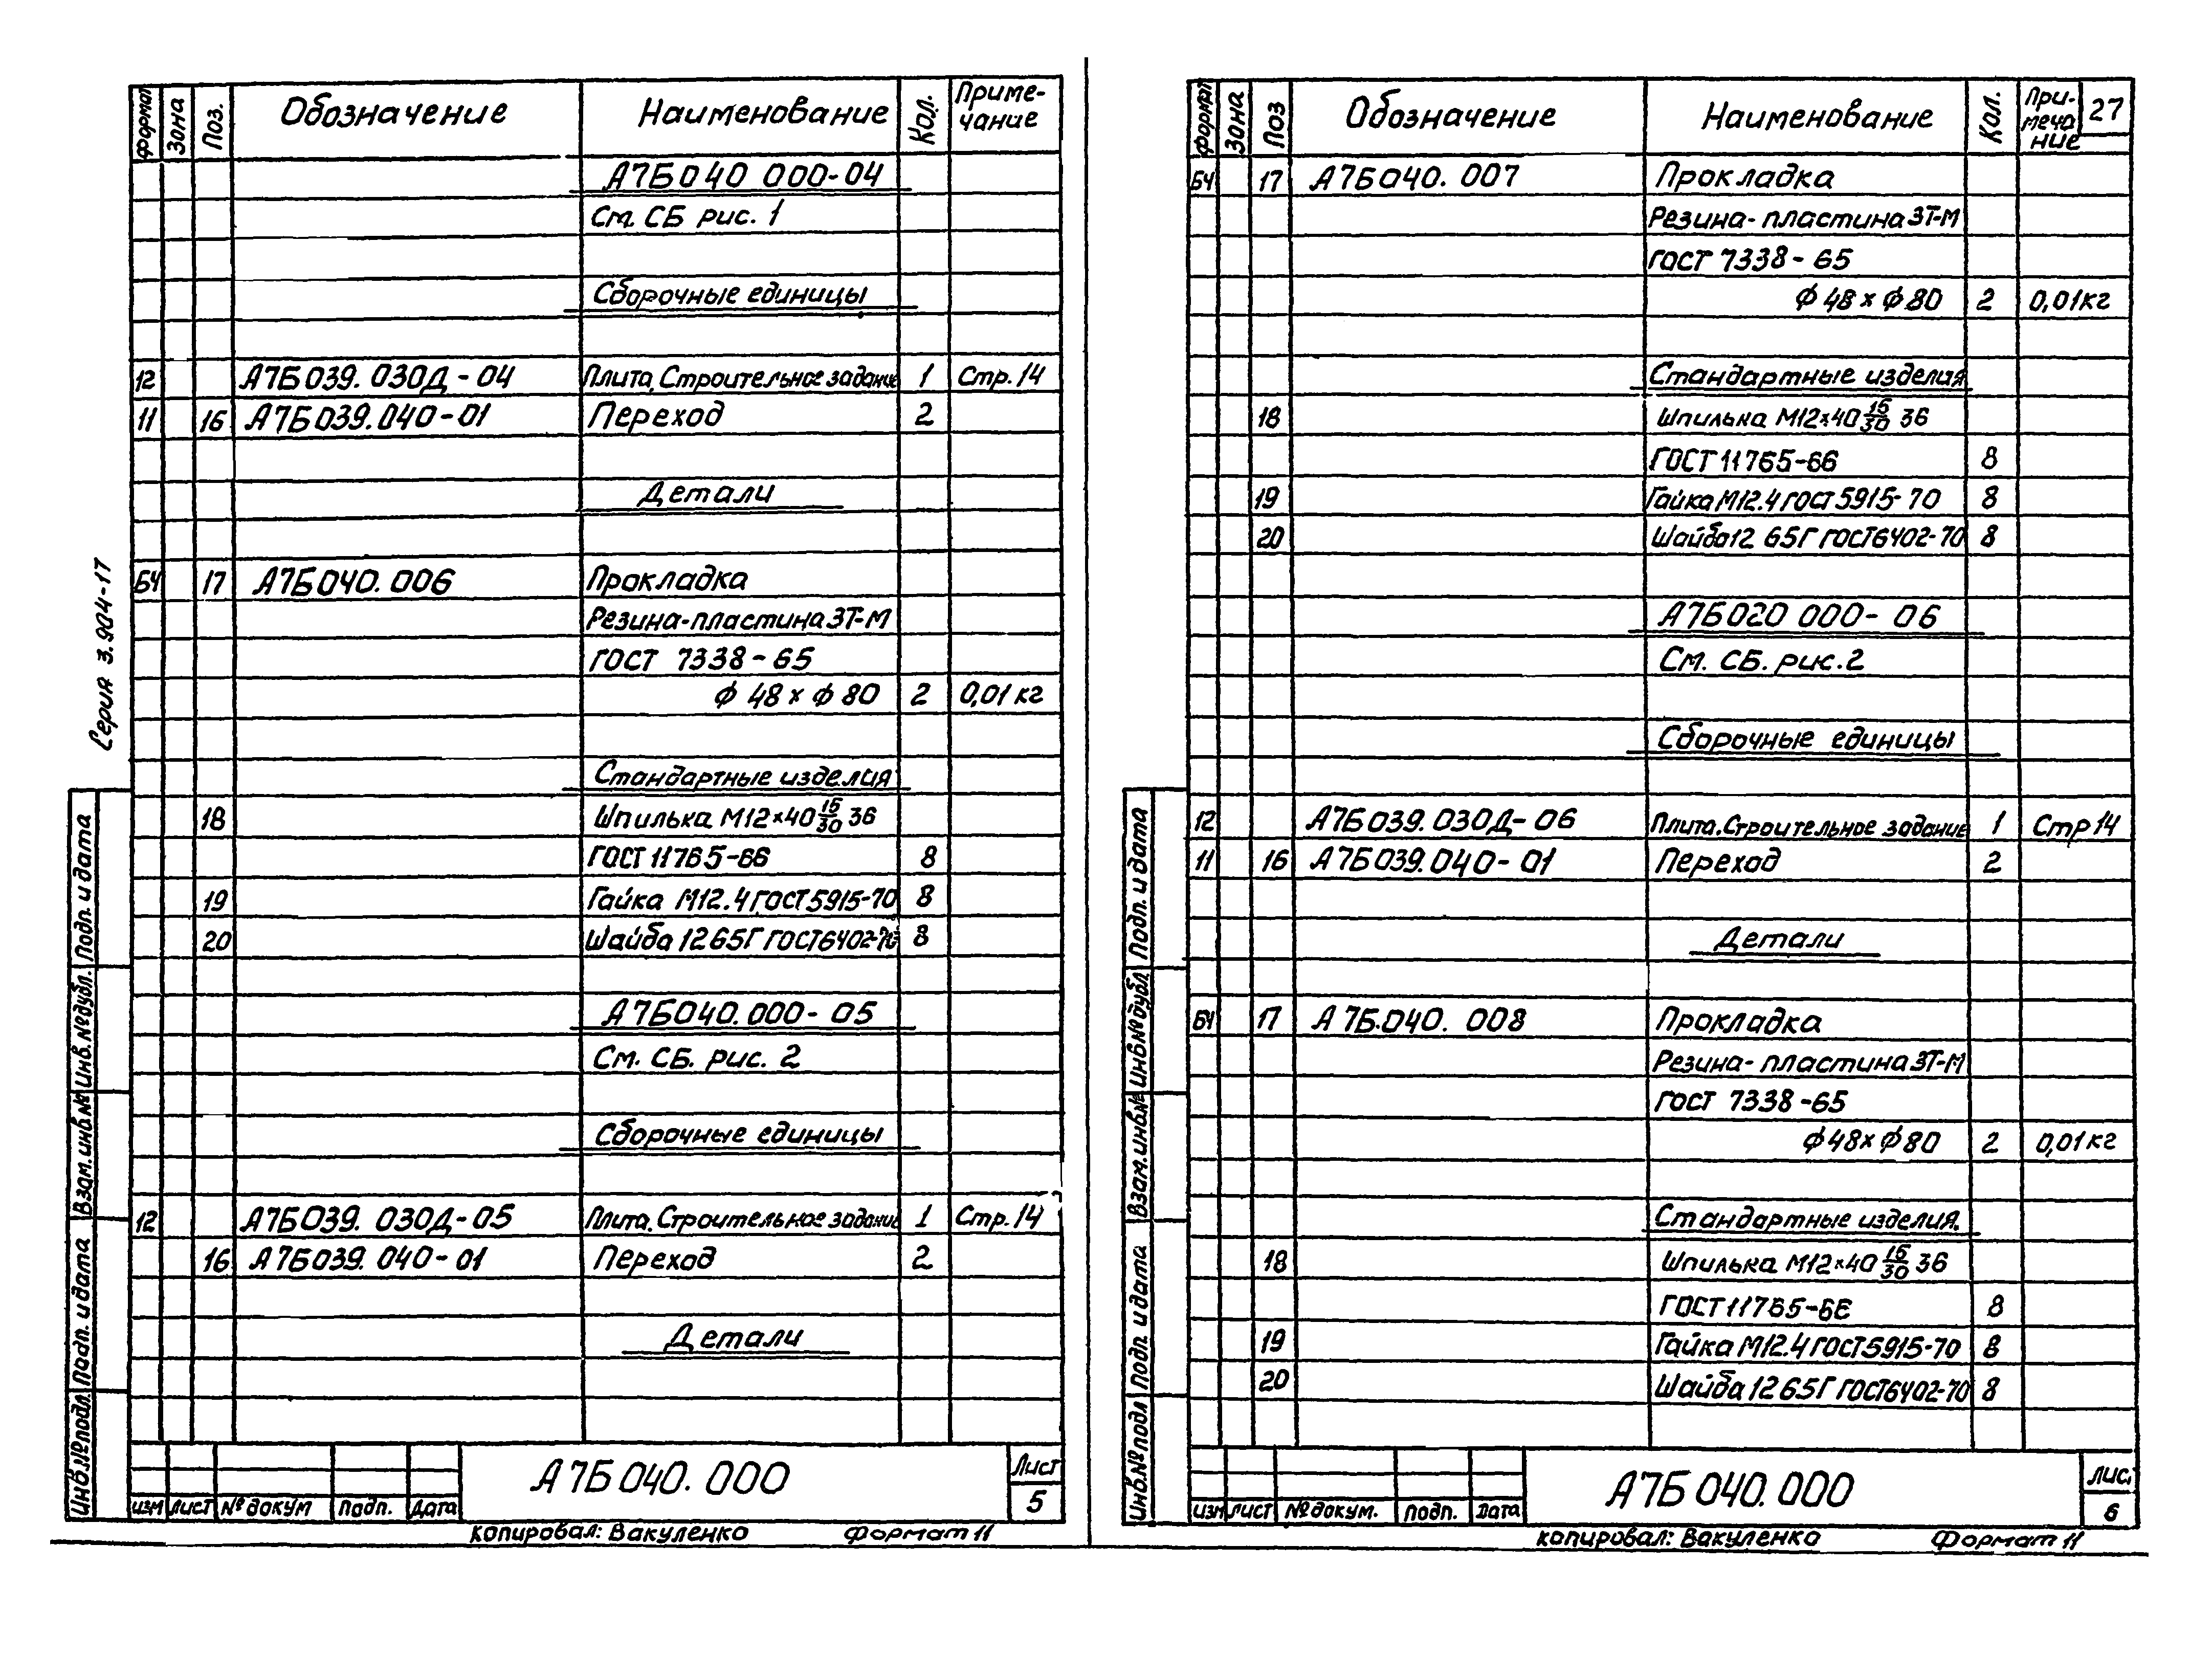 Формат Зона Поз. Обозначение Наименование Кол. Приме-
чание
А7Б040 000-04
См. СБ рис. 1
Сборочные единицы
12 А7Б039. 030Д-04 Плита. Строительное задание 1 Стр. 14
11 16 А7Б039.040-01 Переход 2
Детали
БЧ 17 А7Б040.006 Прокладка
Резина-пластина 3Т-М
ГОСТ 7338-65
ф 48 х ф 80 2 0,01 кг
Стандартные изделия
18 Шпилька М12×40 15/30 36
ГОСТ 11765-66 8
19 Гайка М12.4 ГОСТ 5915-70 8
20 Шайба 12 65Г ГОСТ 6402-70 8
А7Б040.000-05
См. СБ. рис. 2
Сборочные единицы
12 А7Б039. 030Д-05 Плита. Строительное задание 1 Стр. 14
16 А7Б039. 040-01 Переход 2
Детали
Серия 3.904-17
Инв.№подл. Подп. и дата Взам.инв.№ Инв.№дубл. Подп. и дата
А7Б040.000
Лист
5
Изм Лист № докум Подп. Дата
Копировал: Вакуленко Формат 11
Формат Зона Поз Обозначение Наименование Кол. При-
меча
ние
27
БЧ 17 А7Б040. 007 Прокладка
Резина-пластина 3Т-М
ГОСТ 7338-65
ф 48 х ф 80 2 0,01 кг
Стандартные изделия
18 Шпилька М12×40 15/30 36
ГОСТ 11765-66 8
19 Гайка М12.4 ГОСТ 5915-70 8
20 Шайба 12 65Г ГОСТ 6402-70 8
А7Б020 000-06
См. СБ. рис. 2
Сборочные единицы
12 А7Б039.030Д-06 Плита. Строительное задание 1 Стр 14
11 16 А7Б039.040-01 Переход 2
Детали
БЧ 17 А7Б.040. 008 Прокладка
Резина-пластина 3Т-М
ГОСТ 7338-65
ф 48 х ф 80 2 0,01 кг
Стандартные изделия.
18 Шпилька М12×40 15/30 36
ГОСТ 11765-66 8
19 Гайка М12.4 ГОСТ 5915-70 8
20 Шайба 12 65Г ГОСТ 6402-70 8
Инв.№подл Подп. и дата Взам.инв.№ Инв.№дубл Подп. и дата
А7Б 040.000
Лис.
6
Изм Лист № докум. Подп. Дата
Копировал: Вакуленко Формат 11